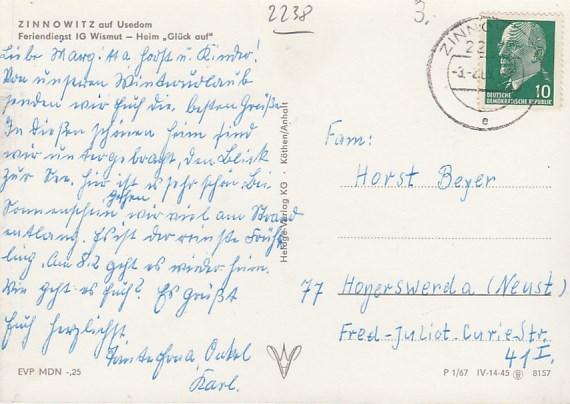 ZINNOWITZ auf Usedom
Feriendienst IG Wismut – Heim „Glück auf"
2238
3,
Liebe Margitta Horst u. Kinder!
Von unserem Winterurlaub
senden wir Euch die besten Grüße
In diesen schönen Heim sind
wir untergebracht, den Blick
zur See. Hier ist es sehr schön. Bei
Sonnenschein gehen wir viel am Strand
entlang. Es ist der reinste Früh
ling. Am 8.2 geht es wieder heim.
Wie geht es Euch? Es grüßt
Euch herzlichst
Onkel
Karl.
EVP MDN -,25
Heldge-Verlag KG · Köthen/Anhalt
ZINNO
22
-3.-2.
e
10
DEUTSCHE
DEMOKRATISCHE REPUBLIK
Fam:
Horst Beyer
77 Hoyerswerda (Neust)
Fred-Juliot-Curie Str.
41 I.
P 1/67 IV-14-45 8157